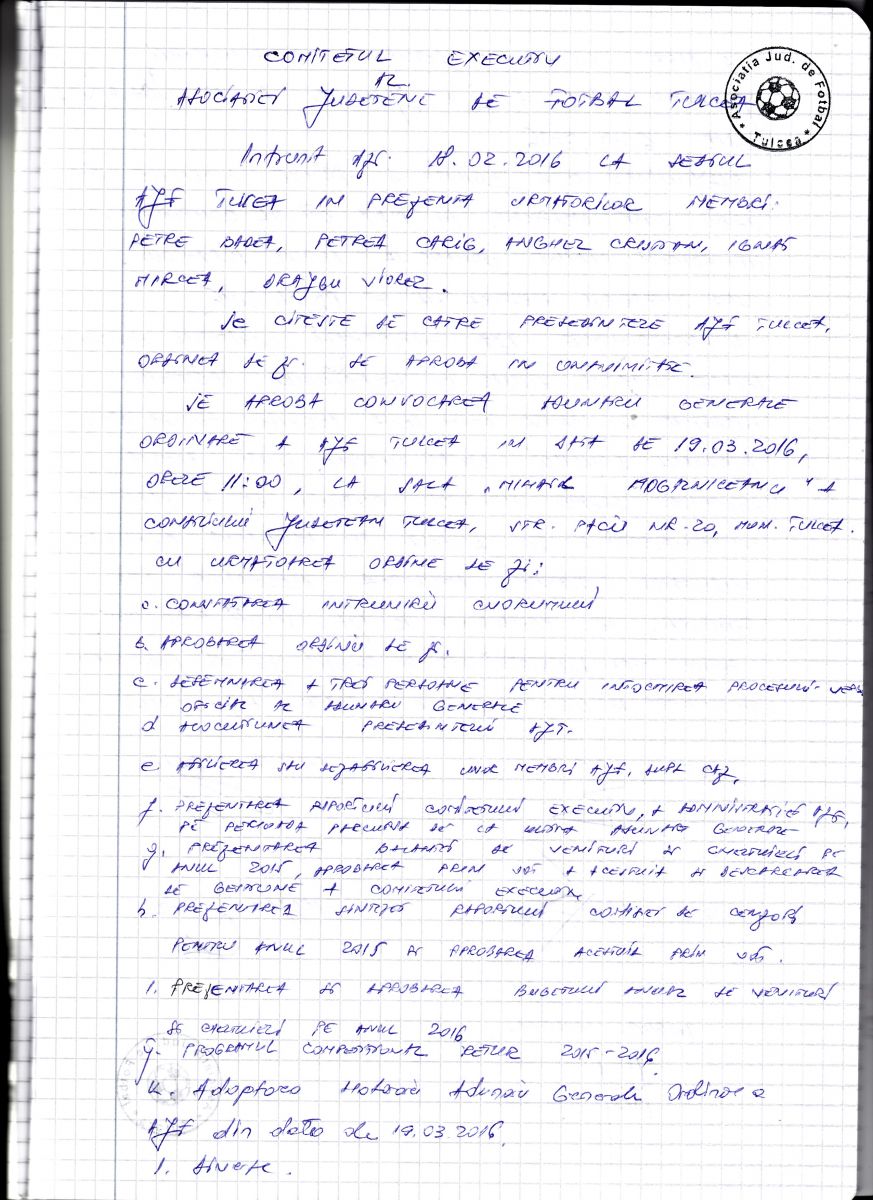 COMITETUL EXECUTIV
AL
ASOCIATIEI JUDETENE DE FOTBAL TULCEA
Asociatia Jud. de Fotbal
* Tulcea *
Intrunit azi. 18.02.2016 LA SEDIUL
AJF TULCEA IN PREZENTA URMATORILOR MEMBRI:
PETRE BADEA, PETREA CARIG, ANGHEL CRISTIAN, IGNAT
MIRCEA, VIOREL.
SE CITESTE DE CATRE PRESEDINTELE AJF TULCEA,
ORDINEA DE ZI. SE APROBA IN UNANIMITATE.
SE APROBA CONVOCAREA ADUNARII GENERALE
ORDINARE A AJF TULCEA IN DATA DE 19.03.2016,
ORELE 11:00, LA SALA „MIHAIL KOGALNICEANU" A
CONSILIULUI JUDETEAN TULCEA, STR. PACII NR. 20, MUN. TULCEA.
CU URMATOAREA ORDINE DE ZI:
a. CONSTATAREA INTRUNIRII CVORUMULUI
b. APROBAREA ORDINII DE ZI.
c. DESEMNAREA A TREI PERSOANE PENTRU INTOCMIREA PROCESULUI-VERBAL
OFICIAL AL ADUNARII GENERALE
d ALOCUTIUNEA PRESEDINTELUI AJF.
e AFILIEREA SAU DEZAFILIEREA UNOR MEMBRI AJF, DUPA CAZ,
f. PREZENTAREA RAPORTULUI COMITETULUI EXECUTIV, A ADMINISTRATIEI AJF,
PE PERIOADA PARCURSA DE LA ULTIMA ADUNARE GENERALA
g, PREZENTAREA BALANTEI DE VENITURI SI CHELTUIELI PE
ANUL 2015, APROBAREA PRIN VOT A ACESTUIA SI DESCARCAREA
DE GESTIUNE A COMITETULUI EXECUTIV,
h. PREZENTAREA SINTEZEI RAPORTULUI COMISIEI DE CENZORI
PENTRU ANUL 2015 SI APROBAREA ACESTUIA PRIN VOT.
i. PREZENTAREA SI APROBAREA BUGETULUI ANUAL DE VENITURI
SI CHELTUIELI PE ANUL 2016
j. PROGRAMUL COMPETITIONAL RETUR 2015-2016.
k. Adoptarea Hotararii Adunarii Generale Ordinare a
AJF din data de 19.03.2016.
l. DIVERSE.